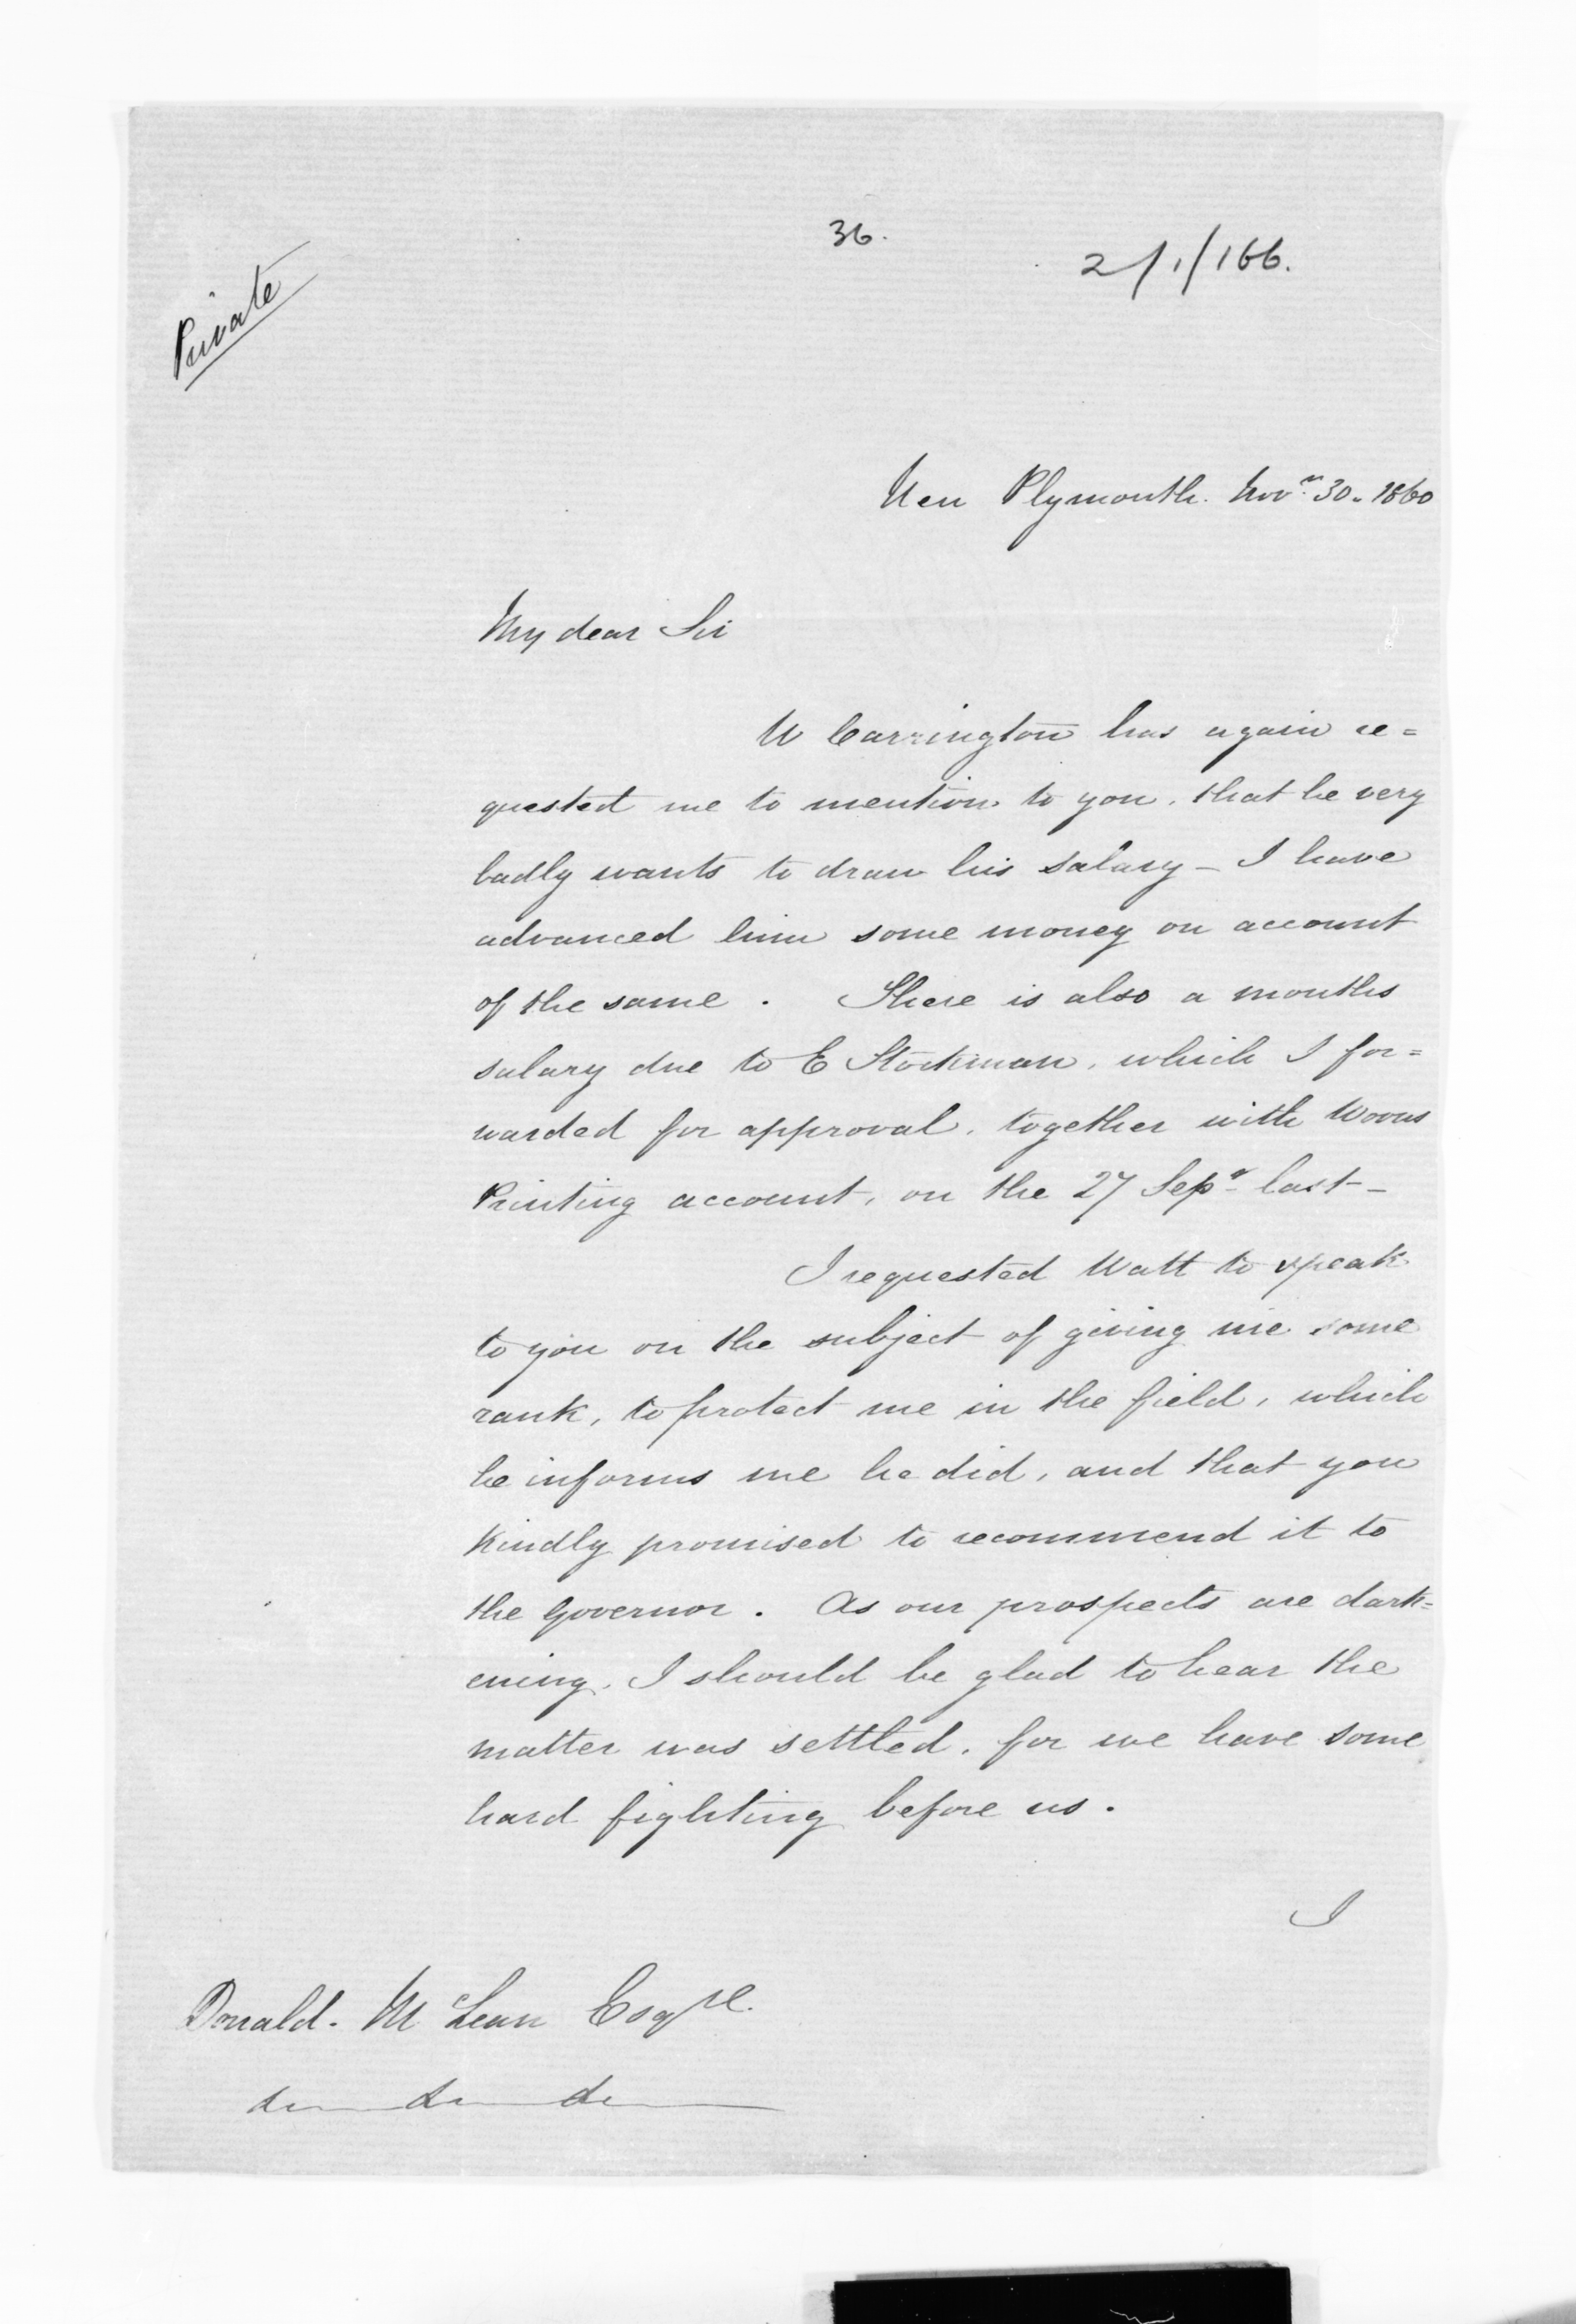 36.
2/1/166.
Private
New Plymouth. Novr. 30. 1860
My dear Sir
W Carrington has again re=
quested me to mention to you, that he very
badly wants to draw his salary - I have
advanced him some money on account
of the same. There is also a months
salary due to E Stockman, which I for=
warded for approval, together with Woons
Printing account, on the 27 Sepr. last -
I requested Watt to speak
to you on the subject of giving me some
rank, to protect me in the field, which
he informs me he did, and that you
kindly promised to recommend it to
the Governor. As our prospects are dark=
ening, I should be glad to hear the
matter was settled, for we have some
hard fighting before us.
I
Donald. McLean Esqre.